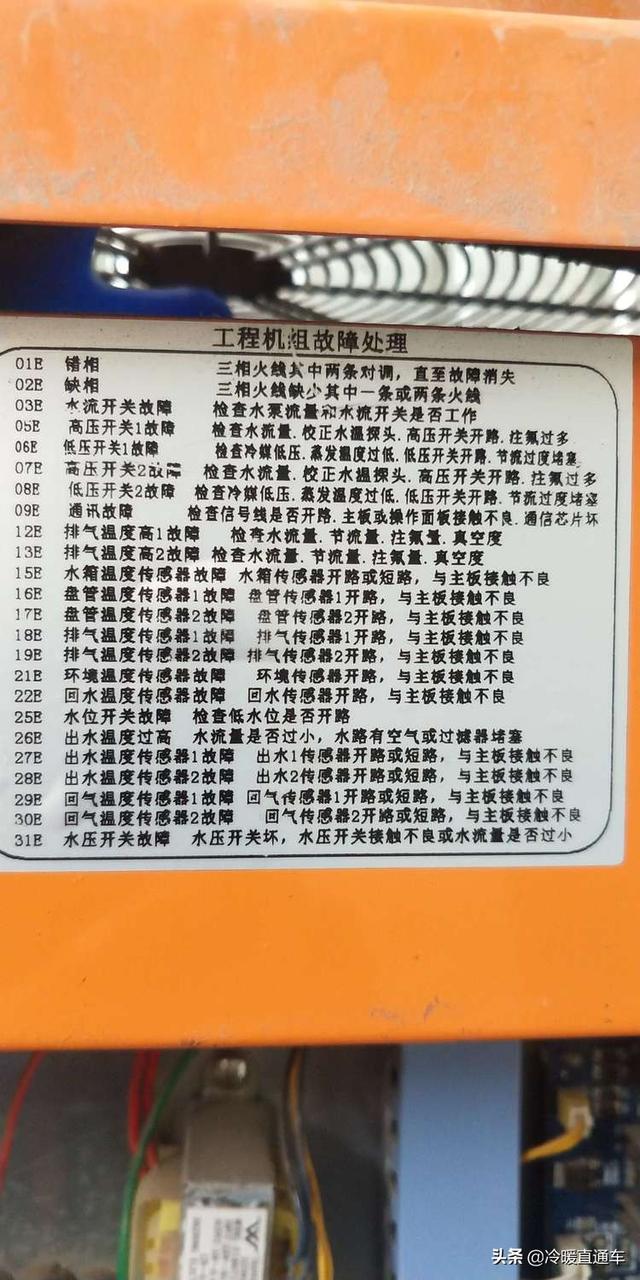 工程机组故障处理
01E 错相 三相火线其中两条对调，直至故障消失
02E 缺相 三相火线缺少其中一条或两条火线
03E 水流开关故障 检查水泵流量和水流开关是否工作
05E 高压开关1故障 检查水流量.校正水温探头.高压开关开路.注氟过多
06E 低压开关1故障 检查冷媒低压.蒸发温度过低.低压开关开路.节流过度堵塞
07E 高压开关2故障 检查水流量.校正水温探头.高压开关开路.注氟过多
08E 低压开关2故障 检查冷媒低压.蒸发温度过低.低压开关开路.节流过度堵塞
09E 通讯故障 检查信号线是否开路.主板或操作面板接触不良.通信芯片坏
12E 排气温度高1故障 检查水流量.节流量.注氟量.真空度
13E 排气温度高2故障 检查水流量.节流量.注氟量.真空度
15E 水箱温度传感器故障 水箱传感器开路或短路，与主板接触不良
16E 盘管温度传感器1故障 盘管传感器1开路，与主板接触不良
17E 盘管温度传感器2故障 盘管传感器2开路，与主板接触不良
18E 排气温度传感器1故障 排气传感器1开路，与主板接触不良
19E 排气温度传感器2故障 排气传感器2开路，与主板接触不良
21E 环境温度传感器故障 环境传感器开路，与主板接触不良
22E 回水温度传感器故障 回水传感器开路，与主板接触不良
25E 水位开关故障 检查低水位是否开路
26E 出水温度过高 水流量是否过小，水路有空气或过滤器堵塞
27E 出水温度传感器1故障 出水1传感器开路或短路，与主板接触不良
28E 出水温度传感器2故障 出水2传感器开路或短路，与主板接触不良
29E 回气温度传感器1故障 回气传感器1开路或短路，与主板接触不良
30E 回气温度传感器2故障 回气传感器2开路或短路，与主板接触不良
31E 水压开关故障 水压开关坏，水压开关接触不良或水流量是否过小
头条 @冷暖直通车